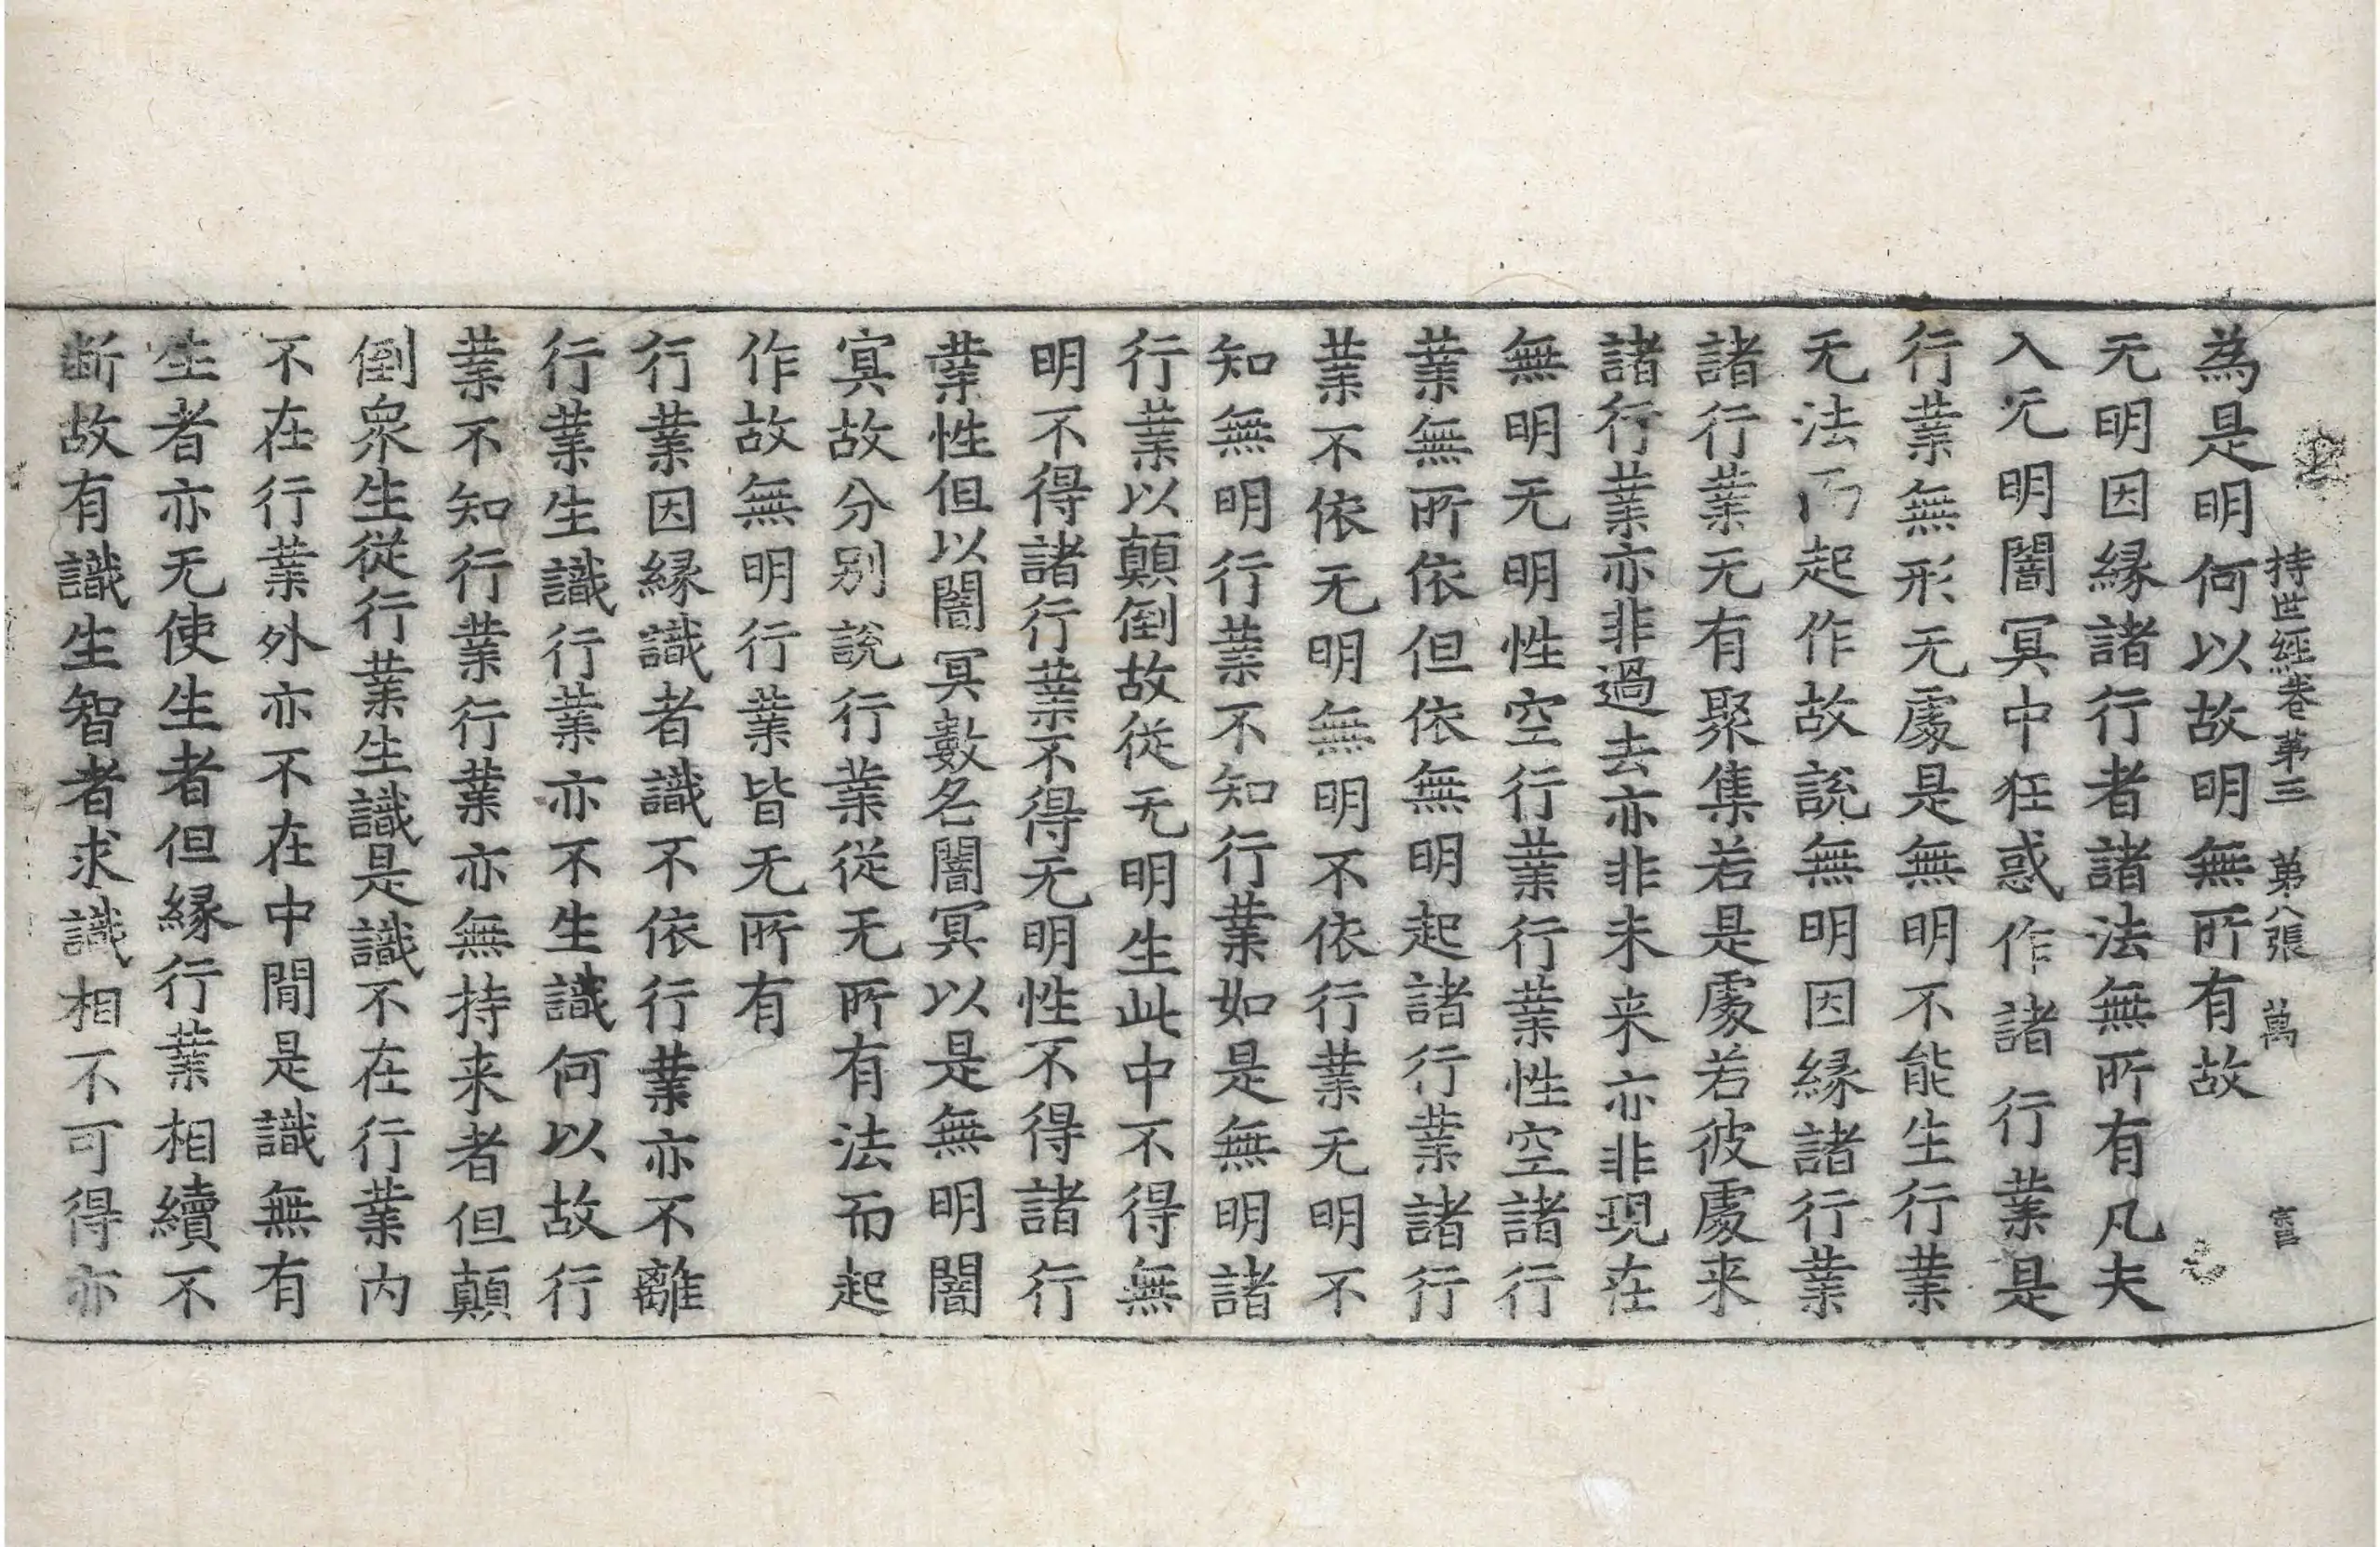 持世經卷第三 第八張 萬
為是明何以故明無所有故
无明因縁諸行者諸法無所有凡夫
入无明闇冥中狂惑作諸行業是
行業無形无處是無明不能生行業
无法而起作故說無明因縁諸行業
諸行業无有聚集若是處若彼處来
諸行業亦非過去亦非未来亦非現在
無明无明性空行業行業性空諸行
業無所依但依無明起諸行業諸行
業不依无明無明不依行業无明不
知無明行業不知行業如是無明諸
行業以顛倒故從无明生此中不得無
明不得諸行業不得无明性不得諸行
業性但以闇冥數名闇冥以是無明闇
冥故分別說行業從无所有法而起
作故無明行業皆无所有
行業因縁識者識不依行業亦不離
行業生識行業亦不生識何以故行
業不知行業行業亦無持来者但顛
倒眾生從行業生識是識不在行業内
不在行業外亦不在中間是識無有
生者亦无使生者但縁行業相續不
断故有識生智者求識相不可得亦